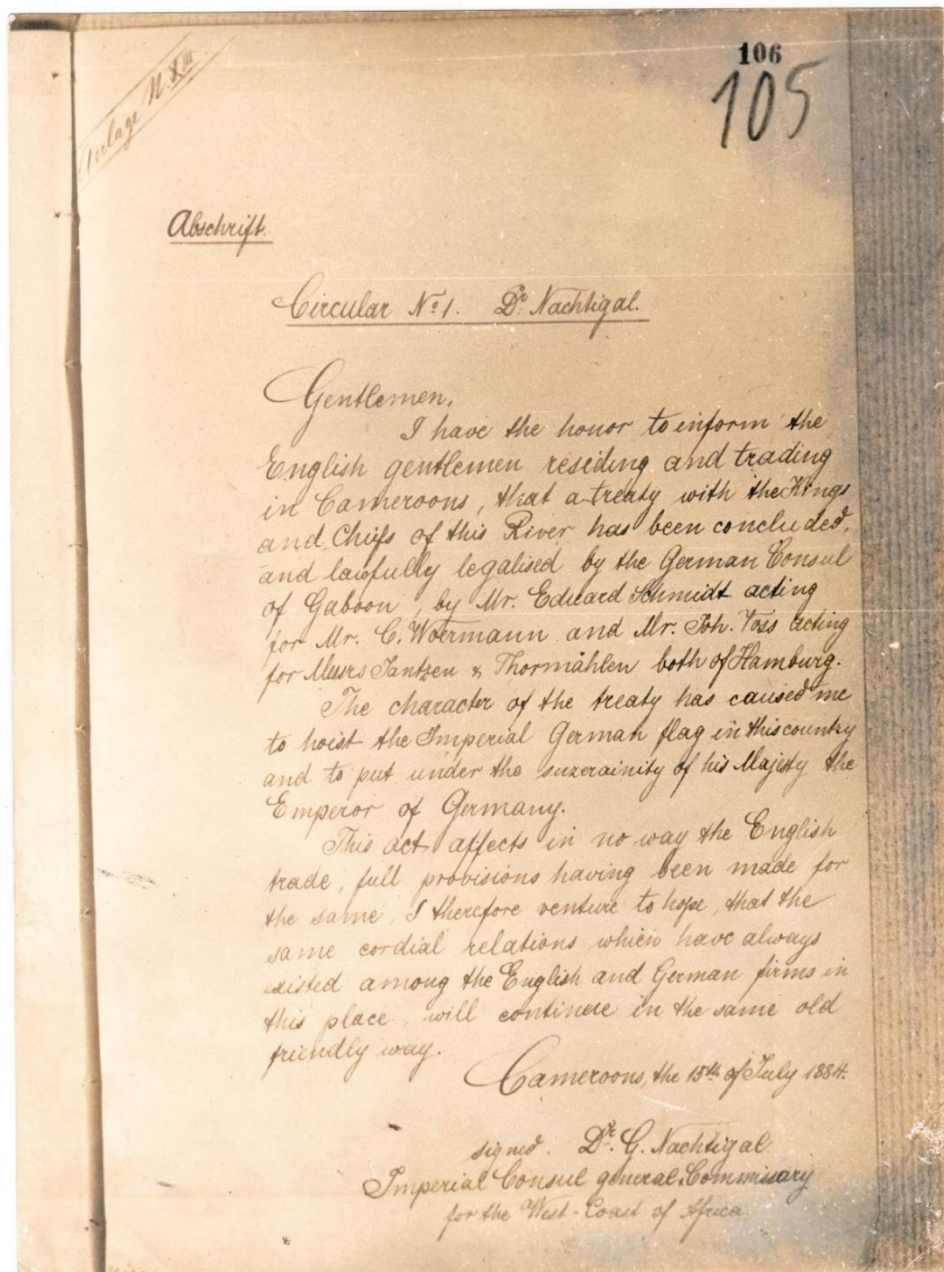 106
105
Anlage N. XIII
Abschrift.
Circular No. 1. Dr. Nachtigal.
Gentlemen,
I have the honor to inform the
English gentlemen residing and trading
in Cameroons, that a treaty with the Kings
and Chiefs of this River has been concluded,
and lawfully legalised by the German Consul
of Gaboon, by Mr. Eduard Schmidt acting
for Mr. C. Woermann and Mr. Joh. Voss acting
for Messrs Jantzen & Thormählen both of Hamburg.
The character of the treaty has caused me
to hoist the Imperial German flag in this country
and to put under the suzerainity of his Majesty the
Emperor of Germany.
This act affects in no way the English
trade, full provisions having been made for
the same, I therefore venture to hope, that the
same cordial relations which have always
existed among the English and German firms in
this place, will continue in the same old
friendly way.
Cameroons, the 15th of July 1884.
signed. Dr. G. Nachtigal
Imperial Consul general & Commissary
for the West-Coast of Africa